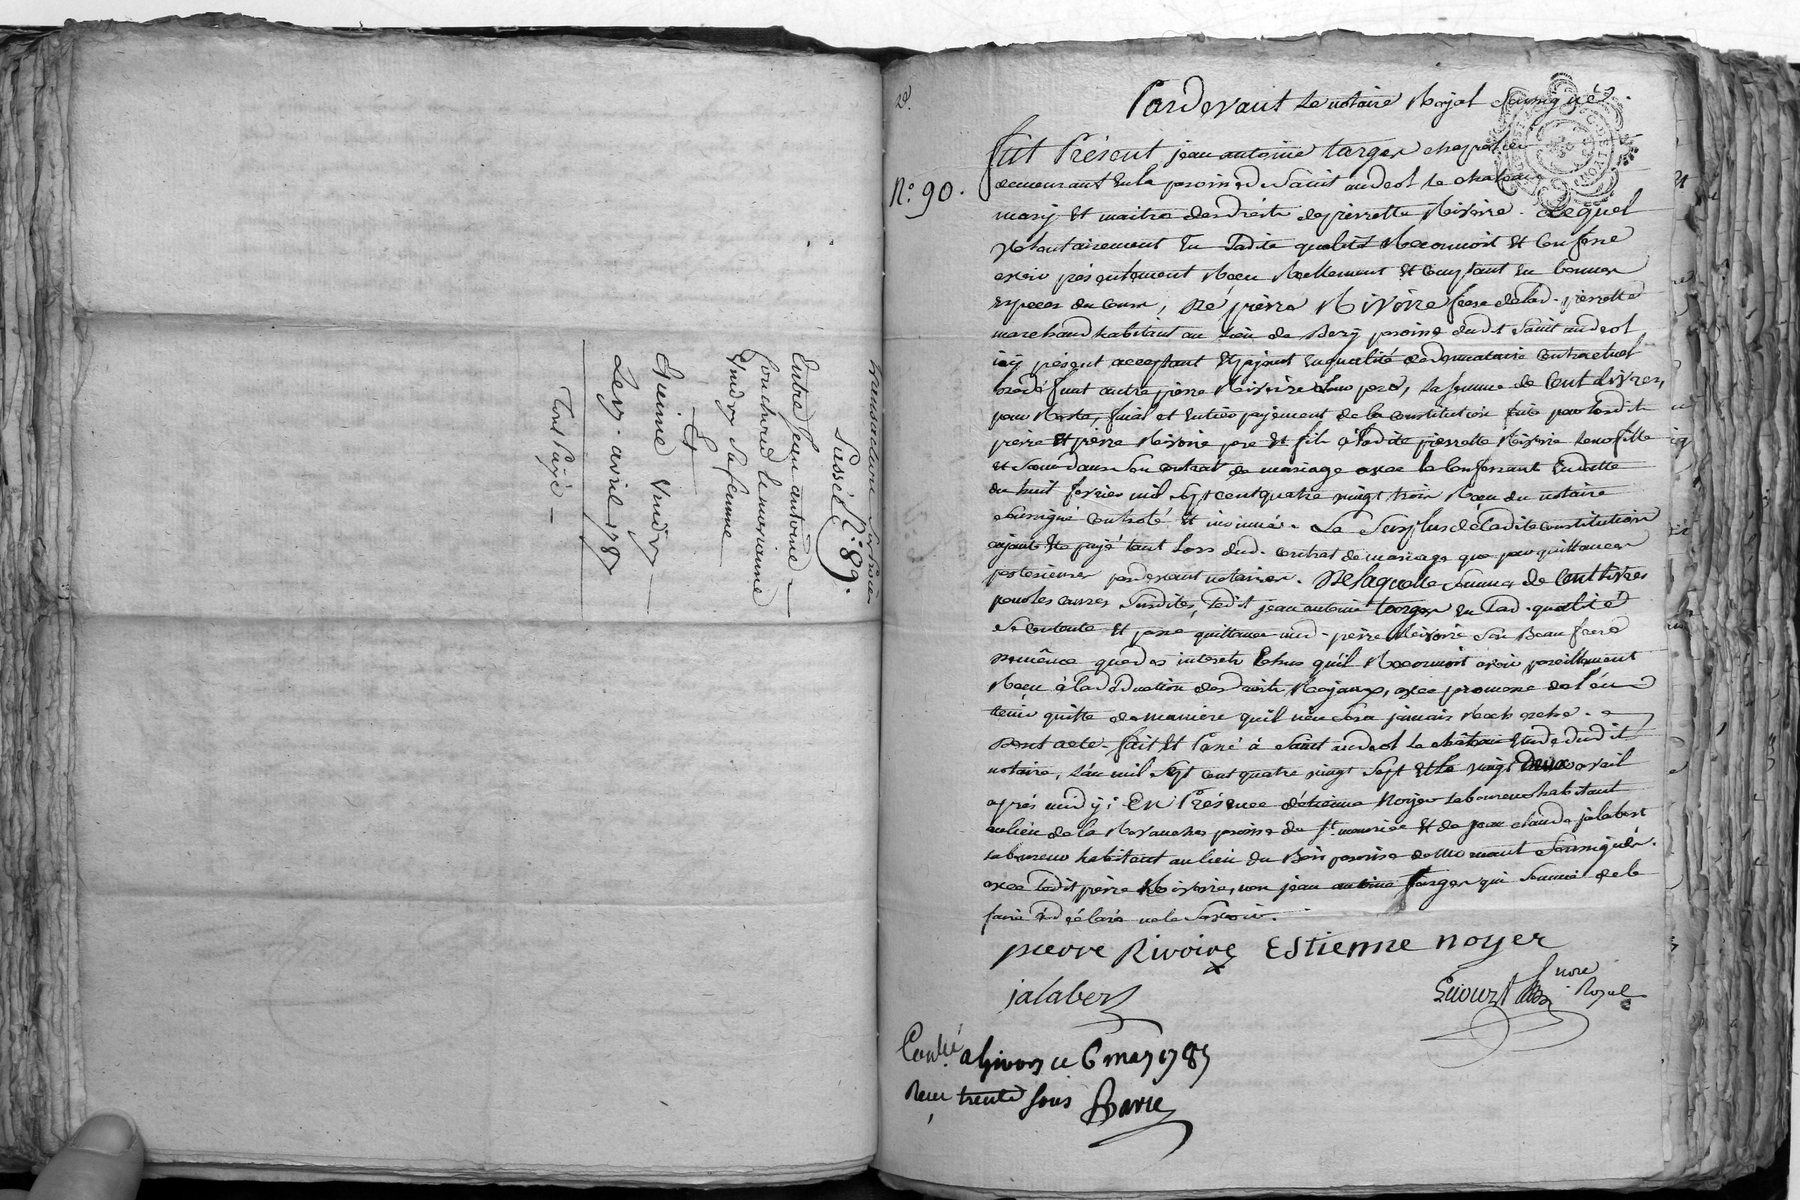 transaction
Passée N.° 89.
Entre Jean antoine
Souchon
Et marianne
sa femme
Et
Le 17 avril 1787
Tiers Payé
2e.
Pardevant Le notaire Royal soussigné
N.° 90.
fut Présent jean antoine targer
demeurant en la paroisse de Saint andeol le chateau
mary Et maitre des droits de pierrette Rivoire. Lequel
volontairement En Ladite qualité Reconnoit Et Confesse
avoir présentement Reçu Réellement Et Comptant En bonnes
Espèces du Cours, De pierre Rivoire frere de lad. pierrette
marchand habitant au Lieu de Bery paroisse dudt Saint andeol
icy présent acceptant Et payant En qualité de donnataire Contractuel
de déffunt autre pierre Rivoire Son pere, La somme de Cent Livres,
pour Reste, final et Entier payement de la Constitution faite par lesdits
pierre Et pierre Rivoire pere Et fils à ladite pierrette Rivoire Leur fille
Et Soeur dans Son Contrat de mariage avec le Confessant En datte
du huit fevrier mil Sept cent quatre vingt trois Reçu du notaire
soussigné Controlé Et insinué. Le Surplus de ladite Constitution
ayant Eté payé tant Lors dud. Contrat de mariage que par quittances
posterieures pardevant notaires. De laquelle Somme de Cent Livres
pour les causes Susdites, Ledit jean antoine targer En lad. qualité
Se Contente Et passe quittance aud. pierre Rivoire Son Beau frere
De même que des interets Echus qu'il Reconnoit avoir pareillement
Reçu à la déduction des droits Royaux, avec promesse de l'en
tenir quitte de maniere qu'il n'en sera jamais Recherché.
Dont acte. fait Et Passé à Saint andeol le château Etude dudit
notaire, L'an mil Sept cent quatre vingt Sept Et le vingt deux avril
après midy: En Présence d'étienne Noyer Laboureur habitant
au lieu de la Rovanches paroisse de St. maurice Et de jean claude jalabert
Laboureur habitant au lieu du Bois paroisse de Mornant Soussignés
avec Ledit pierre Rivoire, non jean antoine targer qui Sommé de le
faire a déclaré ne le Savoir.
pierre Rivoire Estienne noyer
jalabert
nore
Royal
Contlé. a Givors ce 6 may 1787
Reçu trente sous